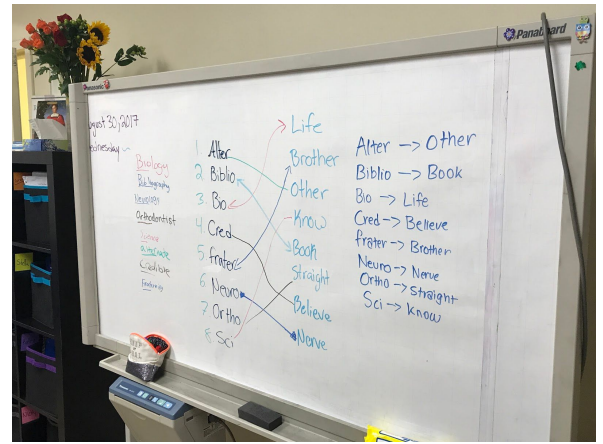 Panaboard
Panaboard
August 30, 2017
Wednesday
Biology
Bibliography
Neurology
Orthodontist
Science
Alternate
Credible
Fraternity
1 Alter
2 Biblio
3. Bio
4. Cred
5. frater
6 Neuro
7 Ortho
8 Sci
Life
Brother
Other
Know
Book
Straight
Believe
Nerve
Alter -> Other
Biblio -> Book
Bio -> Life
Cred -> Believe
frater -> Brother
Neuro -> Nerve
Ortho -> Straight
Sci -> Know